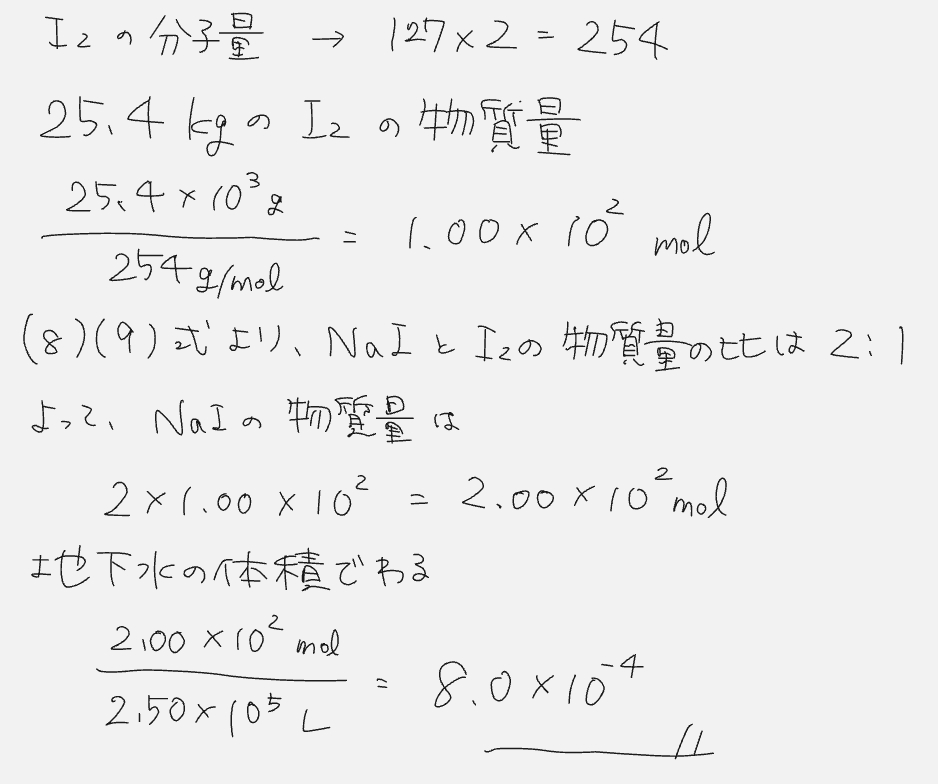 I₂ の 分子量 → 127×2 = 254
25.4 kg の I₂ の 物質量
25.4 × 10³ g / 254 g/mol = 1.00 × 10² mol
(8)(9) 式 より、NaI と I₂の 物質量の比は 2:1
よって、NaI の 物質量 は
2 × 1.00 × 10² = 2.00 × 10² mol
地下水の体積でわる
2.00 × 10² mol / 2.50 × 10⁵ L = 8.0 × 10⁻⁴